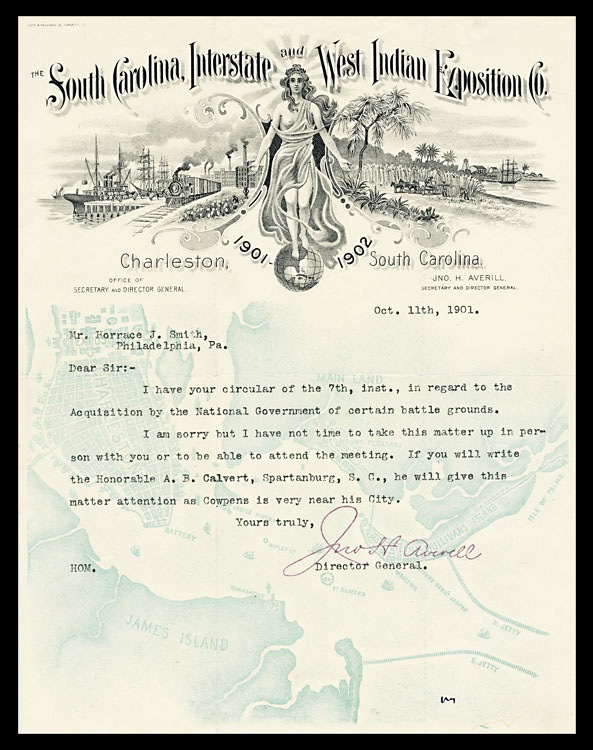 THE South Carolina, Interstate and West Indian Exposition Co.
1901-1902
Charleston, South Carolina.
OFFICE OF
SECRETARY AND DIRECTOR GENERAL.
JNO. H. AVERILL.
SECRETARY AND DIRECTOR GENERAL.
Oct. 11th, 1901.
Mr. Horrace J. Smith,
Philadelphia, Pa.
Dear Sir:-
I have your circular of the 7th, inst., in regard to the
Acquisition by the National Government of certain battle grounds.
I am sorry but I have not time to take this matter up in per-
son with you or to be able to attend the meeting. If you will write
the Honorable A. B. Calvert, Spartanburg, S. C., he will give this
matter attention as Cowpens is very near his City.
Yours truly,
Jno H Averill
HOM.
Director General.
MAIN LAND
CHARLESTON
ISLE OF PALMS
SULLIVANS ISLAND
CASTLE PINCKNEY
BATTERY
RIPLEY FT
FT SUMTER
MOULTRIE
QUARANTINE
JAMES ISLAND
N. JETTY
S. JETTY